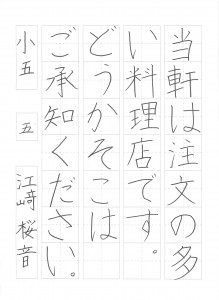 当軒は注文の多
い料理店です。
どうかそこは
ご承知ください。
小五 五 江崎桜音